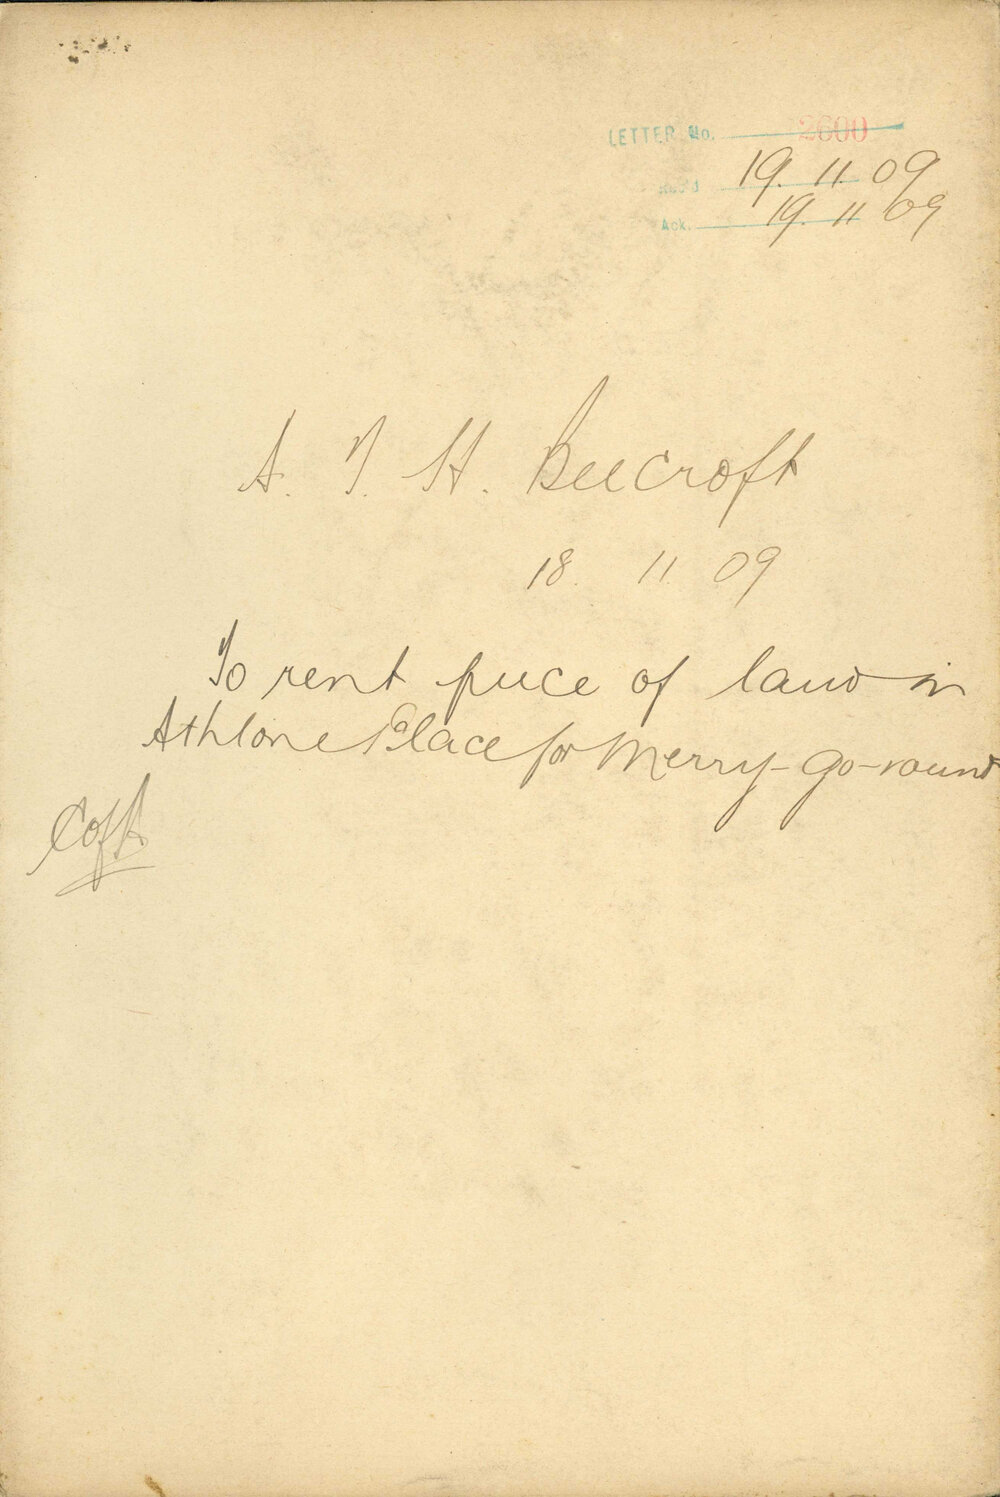 LETTER No. 2600
Rec'd 19. 11. 09
Ack. 19. 11 09
A. T. H. Beecroft
18. 11 09
To rent piece of land in
Athlone Place for Merry-go-round